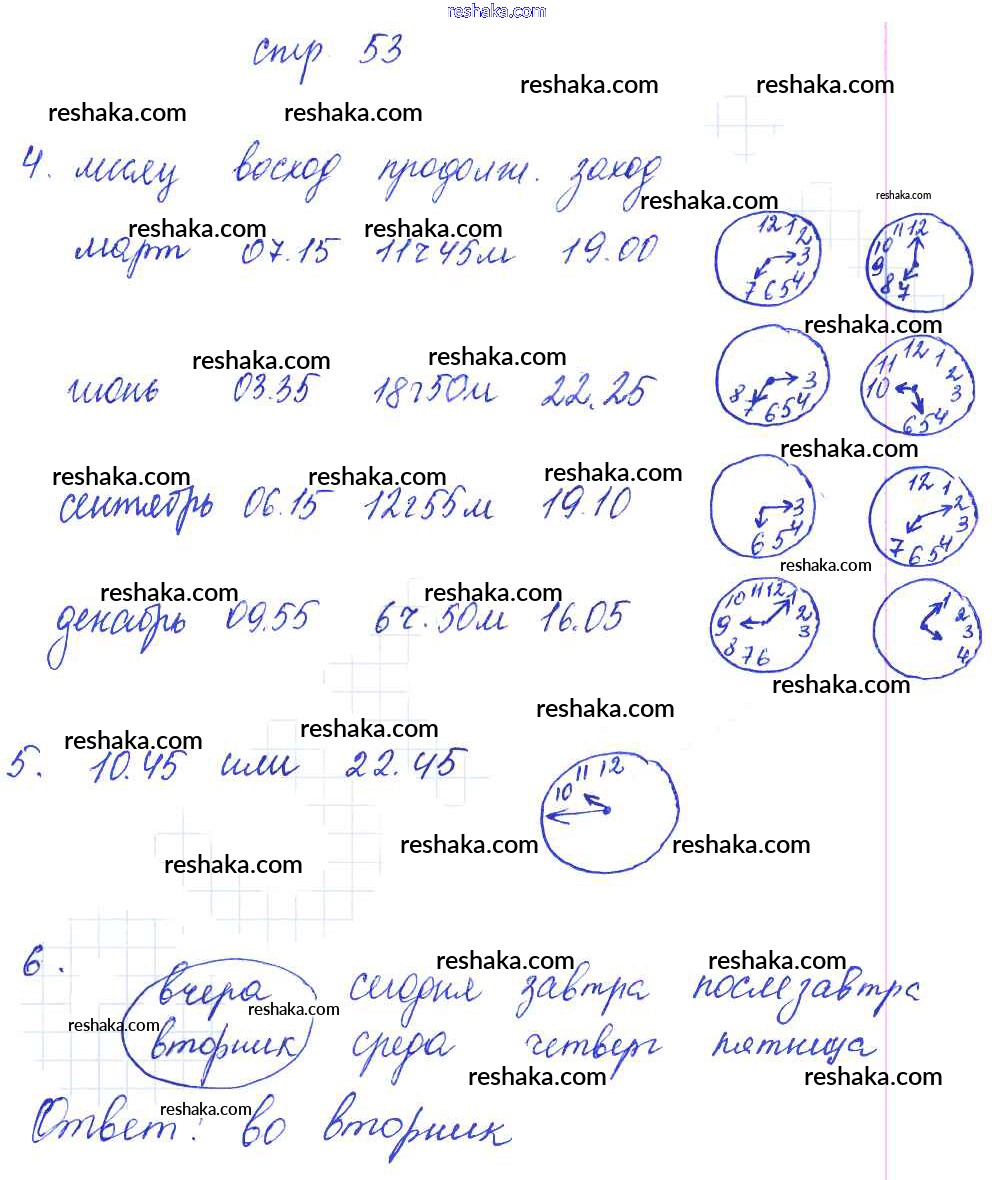 reshaka.com
стр 53
reshaka.com reshaka.com
reshaka.com reshaka.com
4. месяц восход продолж. заход
reshaka.com reshaka.com
reshaka.com reshaka.com
март 07.15 11ч45м 19.00
12 1 2 3 4 5 6 7
12 11 10 9 8 7
reshaka.com
reshaka.com reshaka.com
июнь 03.35 18ч50м 22.25
3 4 5 6 7 8
11 12 1 2 3 4 5 6 10
reshaka.com
reshaka.com reshaka.com reshaka.com
сентябрь 06.15 12ч55м 19.10
3 4 5 6
12 1 2 3 4 5 6 7
reshaka.com
reshaka.com reshaka.com
декабрь 09.55 6ч.50м 16.05
10 11 12 1 2 3 6 7 8 9
1 2 3 4
reshaka.com
reshaka.com
reshaka.com reshaka.com
5. 10.45 или 22.45
10 11 12
reshaka.com reshaka.com reshaka.com
6.
reshaka.com reshaka.com
вчера сегодня завтра послезавтра
reshaka.com reshaka.com
вторник среда четверг пятница
reshaka.com reshaka.com
reshaka.com
Ответ: во вторник